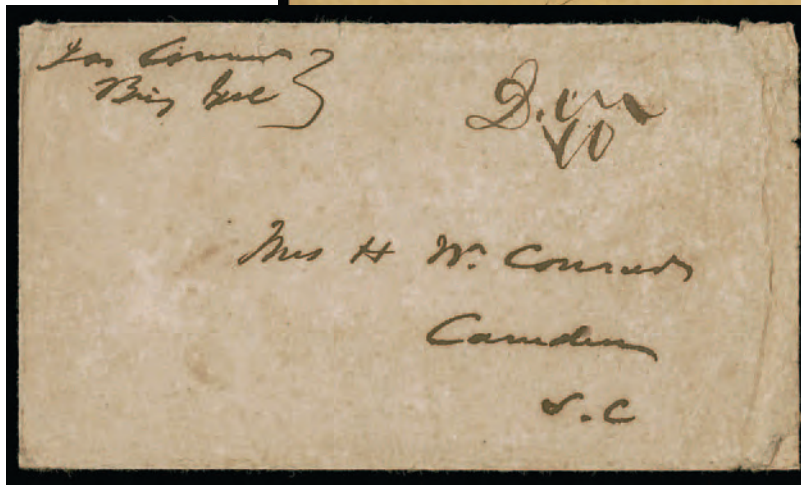 Jas Conner
Brig Genl
Due
10
Mrs H W. Conner
Camden
S. C